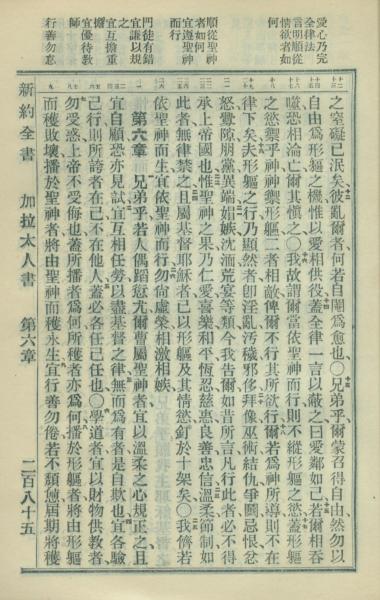 愛心乃完
全律法
言明順從
情欲者如
何
順從聖神
者如何
宜遵聖神
而行
門徒有錯
宜謙以規
之
宜互擔重
擔
宜優待教
師
行善勿怠
之窒礙已泯矣彼亂爾者何若自閹爲愈也○兄弟乎爾蒙召得自由然勿以
自由爲形軀之機惟以愛相供役蓋全律一言以蔽之曰愛鄰如己若爾相吞
噬恐相淪亡爾其愼之○我故謂爾當依聖神而行則不縱形軀之慾蓋形軀
之慾禦乎神神禦形軀二者相敵俾爾不行其所欲行爾若爲神所導則不在
律下矣夫形軀之行乃顯然者卽淫亂汚穢邪侈拜像巫術結仇爭鬩忌恨忿
怒釁隙朋黨異端娼嫉沈湎荒宴等類今我告爾如昔所言凡行此者必不得
承上帝國也惟聖神之果乃仁愛喜樂和平恆忍慈惠良善忠信溫柔節制如
此者無律禁之且屬基督耶穌者已以形軀及其情慾釘於十架矣○我儕若
依聖神而生宜依聖神而行勿尚虛榮相激相嫉
第六章 兄弟乎若人偶蹈愆尤爾曹屬聖神者宜以溫柔之心規正之且
宜自顧恐亦見試宜互相任勞以盡基督之律無而爲有者是自欺也宜各驗
己行則所誇者在己不在他人蓋必各任己任也○學道者宜以財物供敎者
勿受惑上帝不受侮也蓋所播者爲何所穫者亦爲何播於形軀者將由形軀
而穫敗壞播於聖神者將由聖神而穫永生宜行善勿倦若不頽憊屆期將穫
新約全書 加拉太人書 第六章 二百八十五